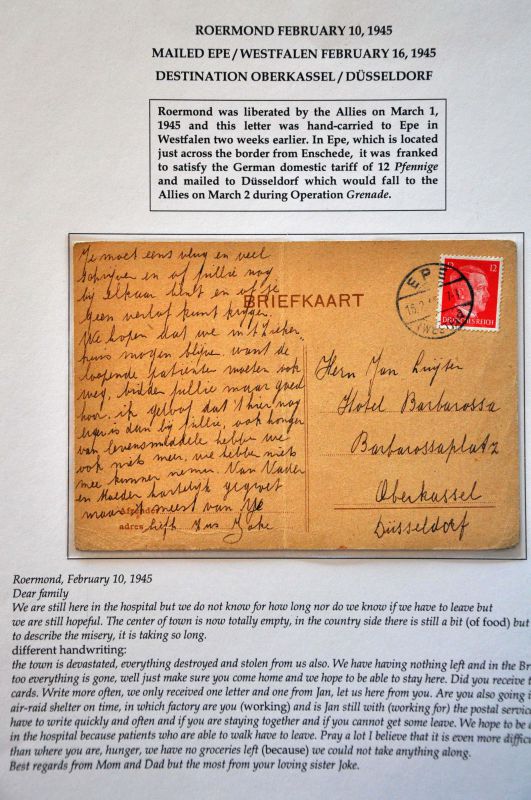 ROERMOND FEBRUARY 10, 1945
MAILED EPE / WESTFALEN FEBRUARY 16, 1945
DESTINATION OBERKASSEL / DÜSSELDORF
Roermond was liberated by the Allies on March 1,
1945 and this letter was hand-carried to Epe in
Westfalen two weeks earlier. In Epe, which is located
just across the border from Enschede, it was franked
to satisfy the German domestic tariff of 12 Pfennige
and mailed to Düsseldorf which would fall to the
Allies on March 2 during Operation Grenade.
Je moet eens vlug en veel
schrijven en of jullie nog
bij elkaar bent en of je
geen verlof kunt krijgen.
We hopen dat we in t Zieken
huis mogen blijve want de
loopende patienten moeten ook
weg, bidden jullie maar goed
hoor. ik geloof dat t hier nog
erger is dan bij jullie, ook honger
van levensmiddele hebben we
ook niets meer, we hebben niets
mee kunnen nemen. Van Vader
en Moeder hartelijk gegroet
maar t meest van je
adres
liefh. Zus Joke
BRIEFKAART
EPE
(WESTF)
a
12
12
DEUTSCHES REICH
Herrn Jan Luijten
Hotel Barbarossa
Barbarossaplatz
Oberkassel
Düsseldorf
Roermond, February 10, 1945
Dear family
We are still here in the hospital but we do not know for how long nor do we know if we have to leave but
we are still hopeful. The center of town is now totally empty, in the country side there is still a bit (of food) but
to describe the misery, it is taking so long.
different handwriting:
the town is devastated, everything destroyed and stolen from us also. We have having nothing left and in the Br
too everything is gone, well just make sure you come home and we hope to be able to stay here. Did you receive t
cards. Write more often, we only received one letter and one from Jan, let us here from you. Are you also going i
air-raid shelter on time, in which factory are you (working) and is Jan still with (working for) the postal service
have to write quickly and often and if you are staying together and if you cannot get some leave. We hope to be a
in the hospital because patients who are able to walk have to leave. Pray a lot I believe that it is even more difficu
than where you are, hunger, we have no groceries left (because) we could not take anything along.
Best regards from Mom and Dad but the most from your loving sister Joke.